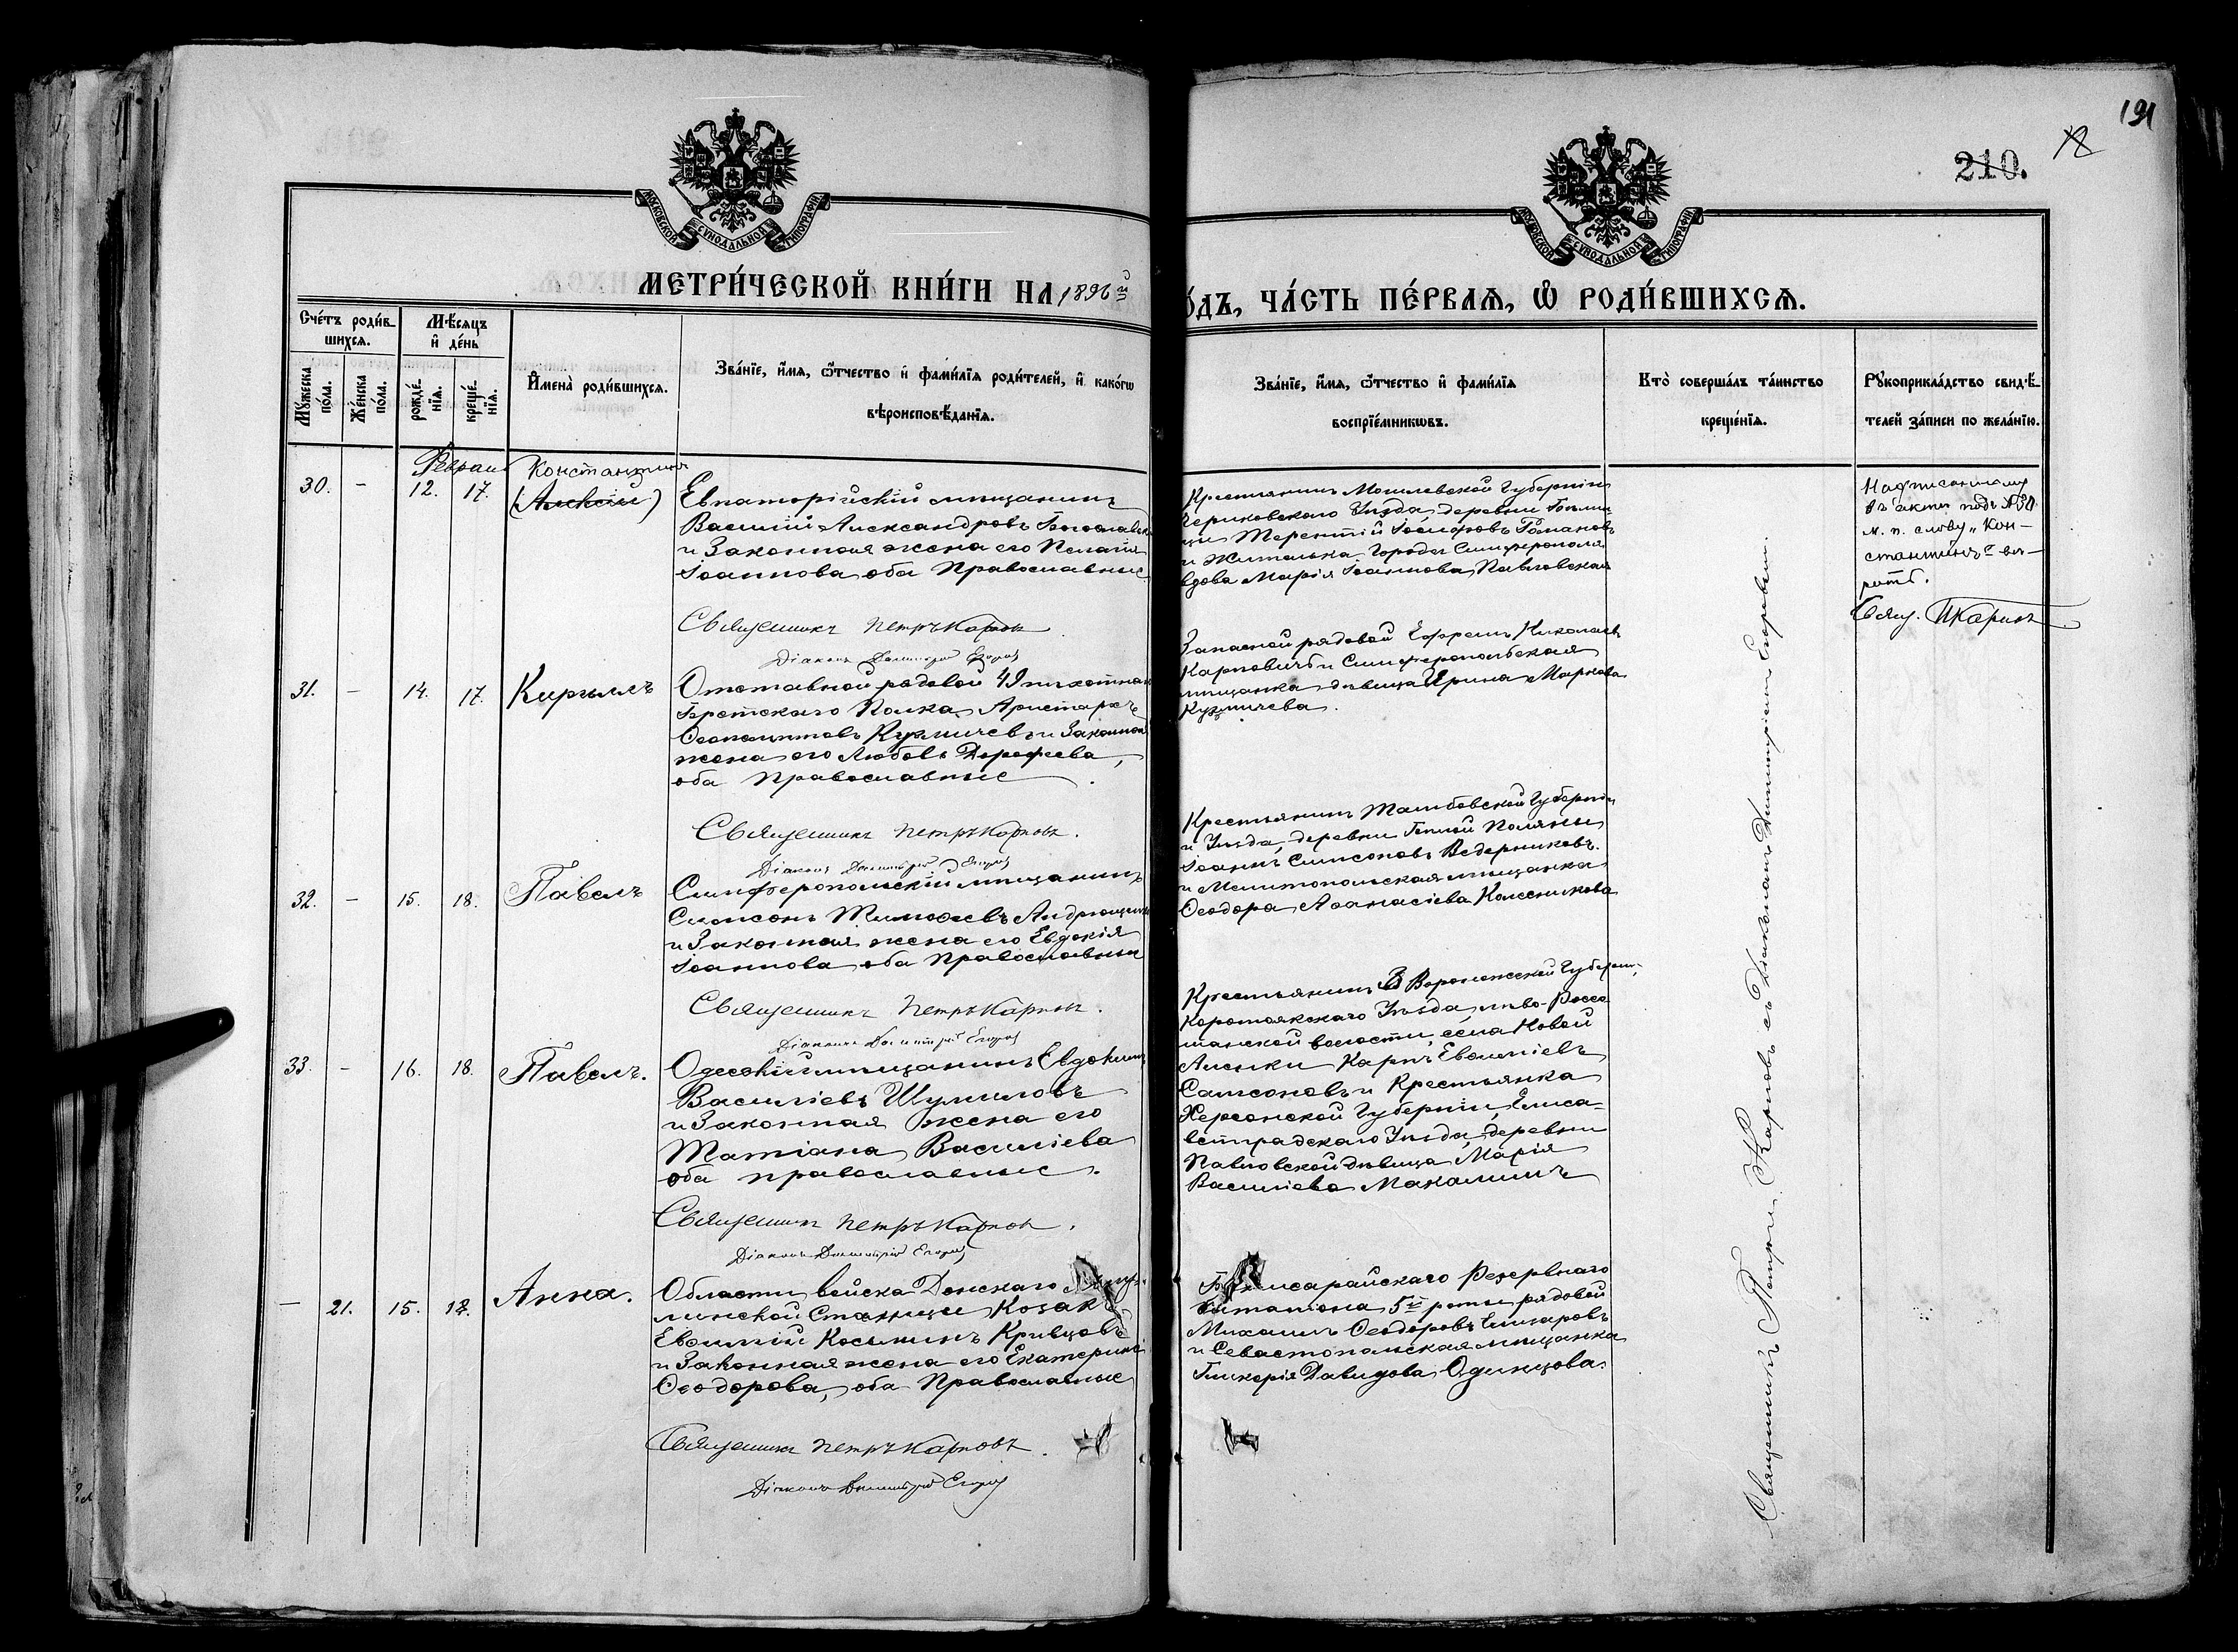 191
210.
МОСКОВСКОЙ СУНОДАЛЬНОЙ ТИПОГРАФІИ
МОСКОВСКОЙ СУНОДАЛЬНОЙ ТИПОГРАФІИ
МЕТРИ́ЧЕСКОЙ КНИ́ГИ НА 1896й
ОДЪ, ЧА́СТЬ ПЕ́РВАѦ, Ѽ РОДИ́ВШИХСѦ.
Сче́тъ роди́в-
шихсѧ.
Мѣ́сяцъ
и҆ де́нь
Мꙋ́жеска по́ла.
Же́нска по́ла.
рожде́нїѧ.
креще́нїѧ.
И҆мена̀ роди́вшихсѧ.
Зва́нїе, и҆́мѧ, ѻ҆́тчество и҆ фами́лїѧ роди́телей, и҆ како́гѡ
вѣроисповѣ́данїѧ.
Зва́нїе, и҆́мѧ, ѻ҆́тчество и҆ фами́лїѧ
воспрїе́мникѡвъ.
Кто̀ соверша́лъ та́инство
креще́нїѧ.
Рꙋкоприкла́дство свидѣ́-
телей за́писи по жела́нїю.
Февраль
30. - 12. 17. Константинъ
(Алексій)
Евпаторійскій мѣщанинъ
Василій Александровъ
и Законная жена его Пелагія
Іоаннова оба Православные
Священникъ Петръ Карповъ
Діаконъ Димитрій Егоровъ
Крестьянинъ Могилевской Губерніи
Чериковскаго Уѣзда, деревни
Терентій Іосифовъ Романовъ
и Жителька Города Симферополя
вдова Марія Іоаннова Павловская
Надписанному
въ актѣ подъ №30
м. п. слову „Кон-
стантинъ" вѣ-
рить.
Свящ. П Карповъ
31. - 14. 17. Кириллъ
Отставной рядовой 49 пѣхотнаго
Брестскаго Полка, Аристархъ
Феопемптовъ Кузмичевъ и Законная
жена его Любовь Дорофеева,
оба Православные
Священникъ Петръ Карповъ.
Діаконъ Димитрій Егоровъ
Запасной рядовой Ефремъ Николаевъ
Карповичъ и Симферопольская
мѣщанка дѣвица Ирина Маркова
Кузмичева.
32. - 15. 18. Павелъ
Симферопольскій мѣщанинъ
Симеонъ Тимофеевъ
и Законная жена его Евдокія
Іоаннова оба Православные
Священникъ Петръ Карповъ.
Діаконъ Димитрій Егоровъ
Крестьянинъ Тамбовской Губерніи
и Уѣзда, деревни Поляны
Іоаннъ Симеоновъ Ведерниковъ.
и Мелитопольская мѣщанка
Феодора Афанасіева Колесникова
33. - 16. 18. Павелъ.
Одесскій мѣщанинъ Евдокимъ
Василіевъ Шумиловъ
и Законная жена его
Татіана Василіева
оба православные.
Священникъ Петръ Карповъ.
Діаконъ Димитрій Егоровъ
Крестьянинъ Воронежской Губерніи,
Коротоякскаго Уѣзда,
волости, села Новой
Карпъ Евфиміевъ
Самсоновъ и Крестьянка
Херсонской Губерніи, Елиса-
ветградскаго Уѣзда, деревни
Павловской дѣвица Марія
Василіева
- 21. 15. 18. Анна.
Области войска Донскаго
Станицы Козакъ
Евфимій Косьминъ Кривцовъ
и Законная жена его Екатерина
Феодорова, оба Православные
Священникъ Петръ Карповъ.
Діаконъ Димитрій Егоровъ
Резервнаго
Баталіона 5й роты рядовой
Михаилъ Феодоровъ
и Севастопольская мѣщанка
Гликерія Давидова Одинцова.
Священникъ Петръ Карповъ съ Діакономъ Димитріемъ Егоровымъ.